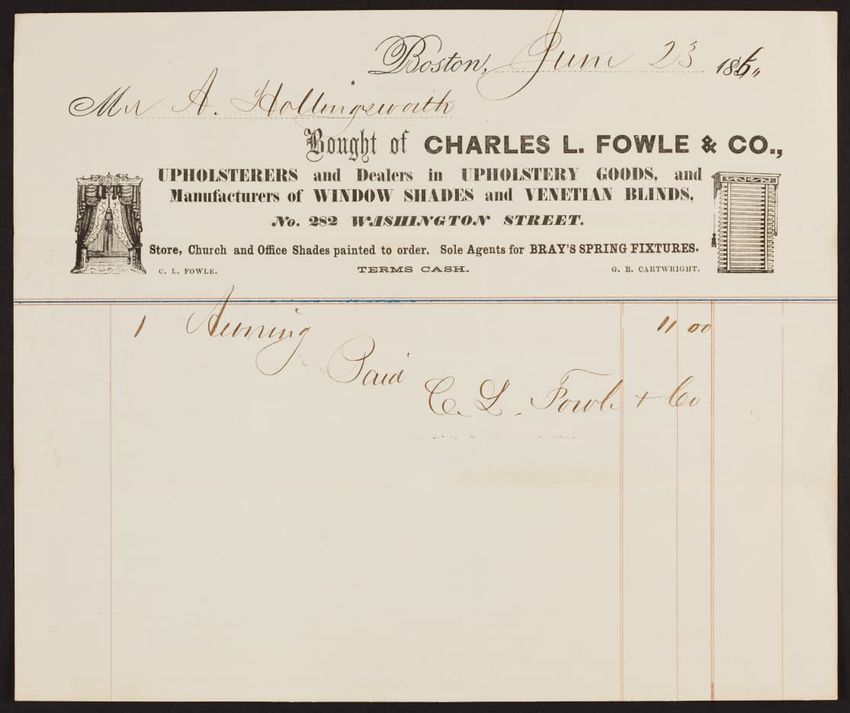 Boston, June 23 186
Mr A. Hollingsworth
Bought of CHARLES L. FOWLE & CO.,
UPHOLSTERERS and Dealers in UPHOLSTERY GOODS, and
Manufacturers of WINDOW SHADES and VENETIAN BLINDS,
No. 282 WASHINGTON STREET.
Store, Church and Office Shades painted to order. Sole Agents for BRAY'S SPRING FIXTURES.
C. L. FOWLE. TERMS CASH. G. B. CARTWRIGHT.
1 Awning 11 00
Paid
C. L. Fowle + Co